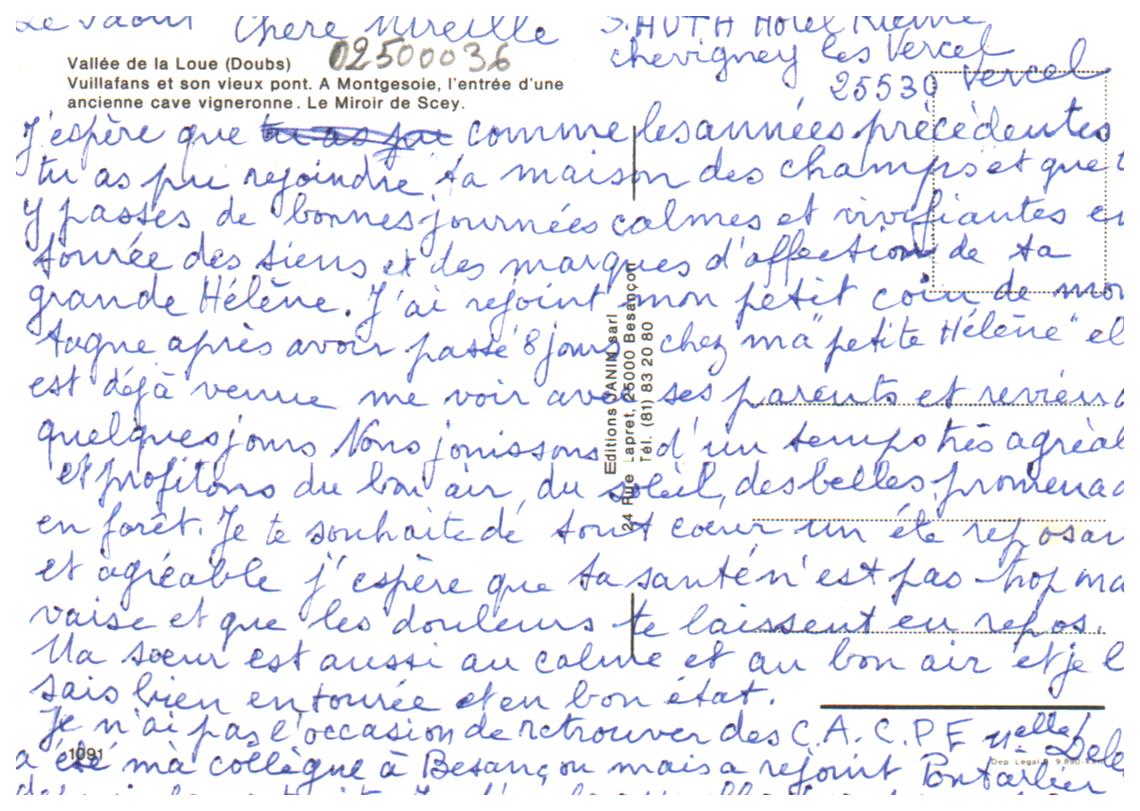 Le 5 août Chère Mireille
S. HUTH Hôtel
chevigney les Vercel
25530 Vercel
02500036
Vallée de la Loue (Doubs)
Vuillafans et son vieux pont. A Montgesoie, l'entrée d'une
ancienne cave vigneronne. Le Miroir de Scey.
J'espère que tu as pu comme les années précédentes
tu as pu rejoindre ta maison des champs et que t
y passes de bonnes journées calmes et vivifiantes en
tourée des siens et des marques d'affection de ta
grande Hélène. J'ai rejoint mon petit coin de mon
tagne après avoir passé 8 jours chez ma "petite Hélène" el
est déjà venue me voir avec ses parents et reviend
quelques jours Nous jouissons d'un temps très agréab
et profitons du bon air, du soleil, des belles promenad
en forêt. Je te souhaite de tout coeur un été reposan
et agréable j'espère que ta santé n'est pas trop mau
vaise et que les douleurs te laissent en repos.
Ma soeur est aussi au calme et au bon air et je l
sais bien entourée et en bon état.
Je n'ai pas l'occasion de retrouver des C.A.C.P.E Melle Dela
a été ma collègue à Besançon mais a rejoint Pontarlier
Editions JANIN sarl
24 Rue Lapret, 25000 Besançon
Tél. (81) 83 20 80
1091
Dep Legal